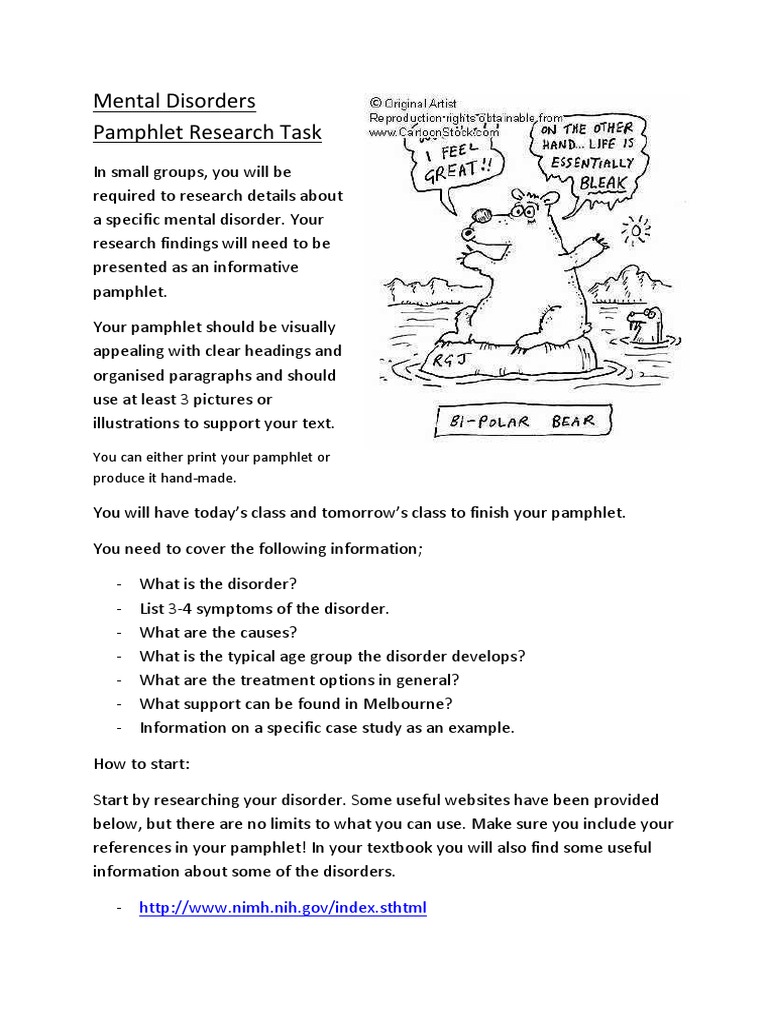 Mental Disorders
Pamphlet Research Task
In small groups, you will be
required to research details about
a specific mental disorder. Your
research findings will need to be
presented as an informative
pamphlet.
Your pamphlet should be visually
appealing with clear headings and
organised paragraphs and should
use at least 3 pictures or
illustrations to support your text.
You can either print your pamphlet or
produce it hand-made.
© Original Artist
Reproduction rights obtainable from
www.CartoonStock.com
I FEEL
GREAT!!
ON THE OTHER
HAND... LIFE IS
ESSENTIALLY
BLEAK
RGJ
BI-POLAR BEAR
You will have today's class and tomorrow's class to finish your pamphlet.
You need to cover the following information;
- What is the disorder?
- List 3-4 symptoms of the disorder.
- What are the causes?
- What is the typical age group the disorder develops?
- What are the treatment options in general?
- What support can be found in Melbourne?
- Information on a specific case study as an example.
How to start:
Start by researching your disorder. Some useful websites have been provided
below, but there are no limits to what you can use. Make sure you include your
references in your pamphlet! In your textbook you will also find some useful
information about some of the disorders.
- http://www.nimh.nih.gov/index.sthtml